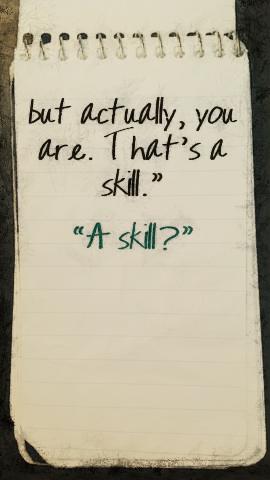 but actually, you
are. That's a
skill."
"A skill?"